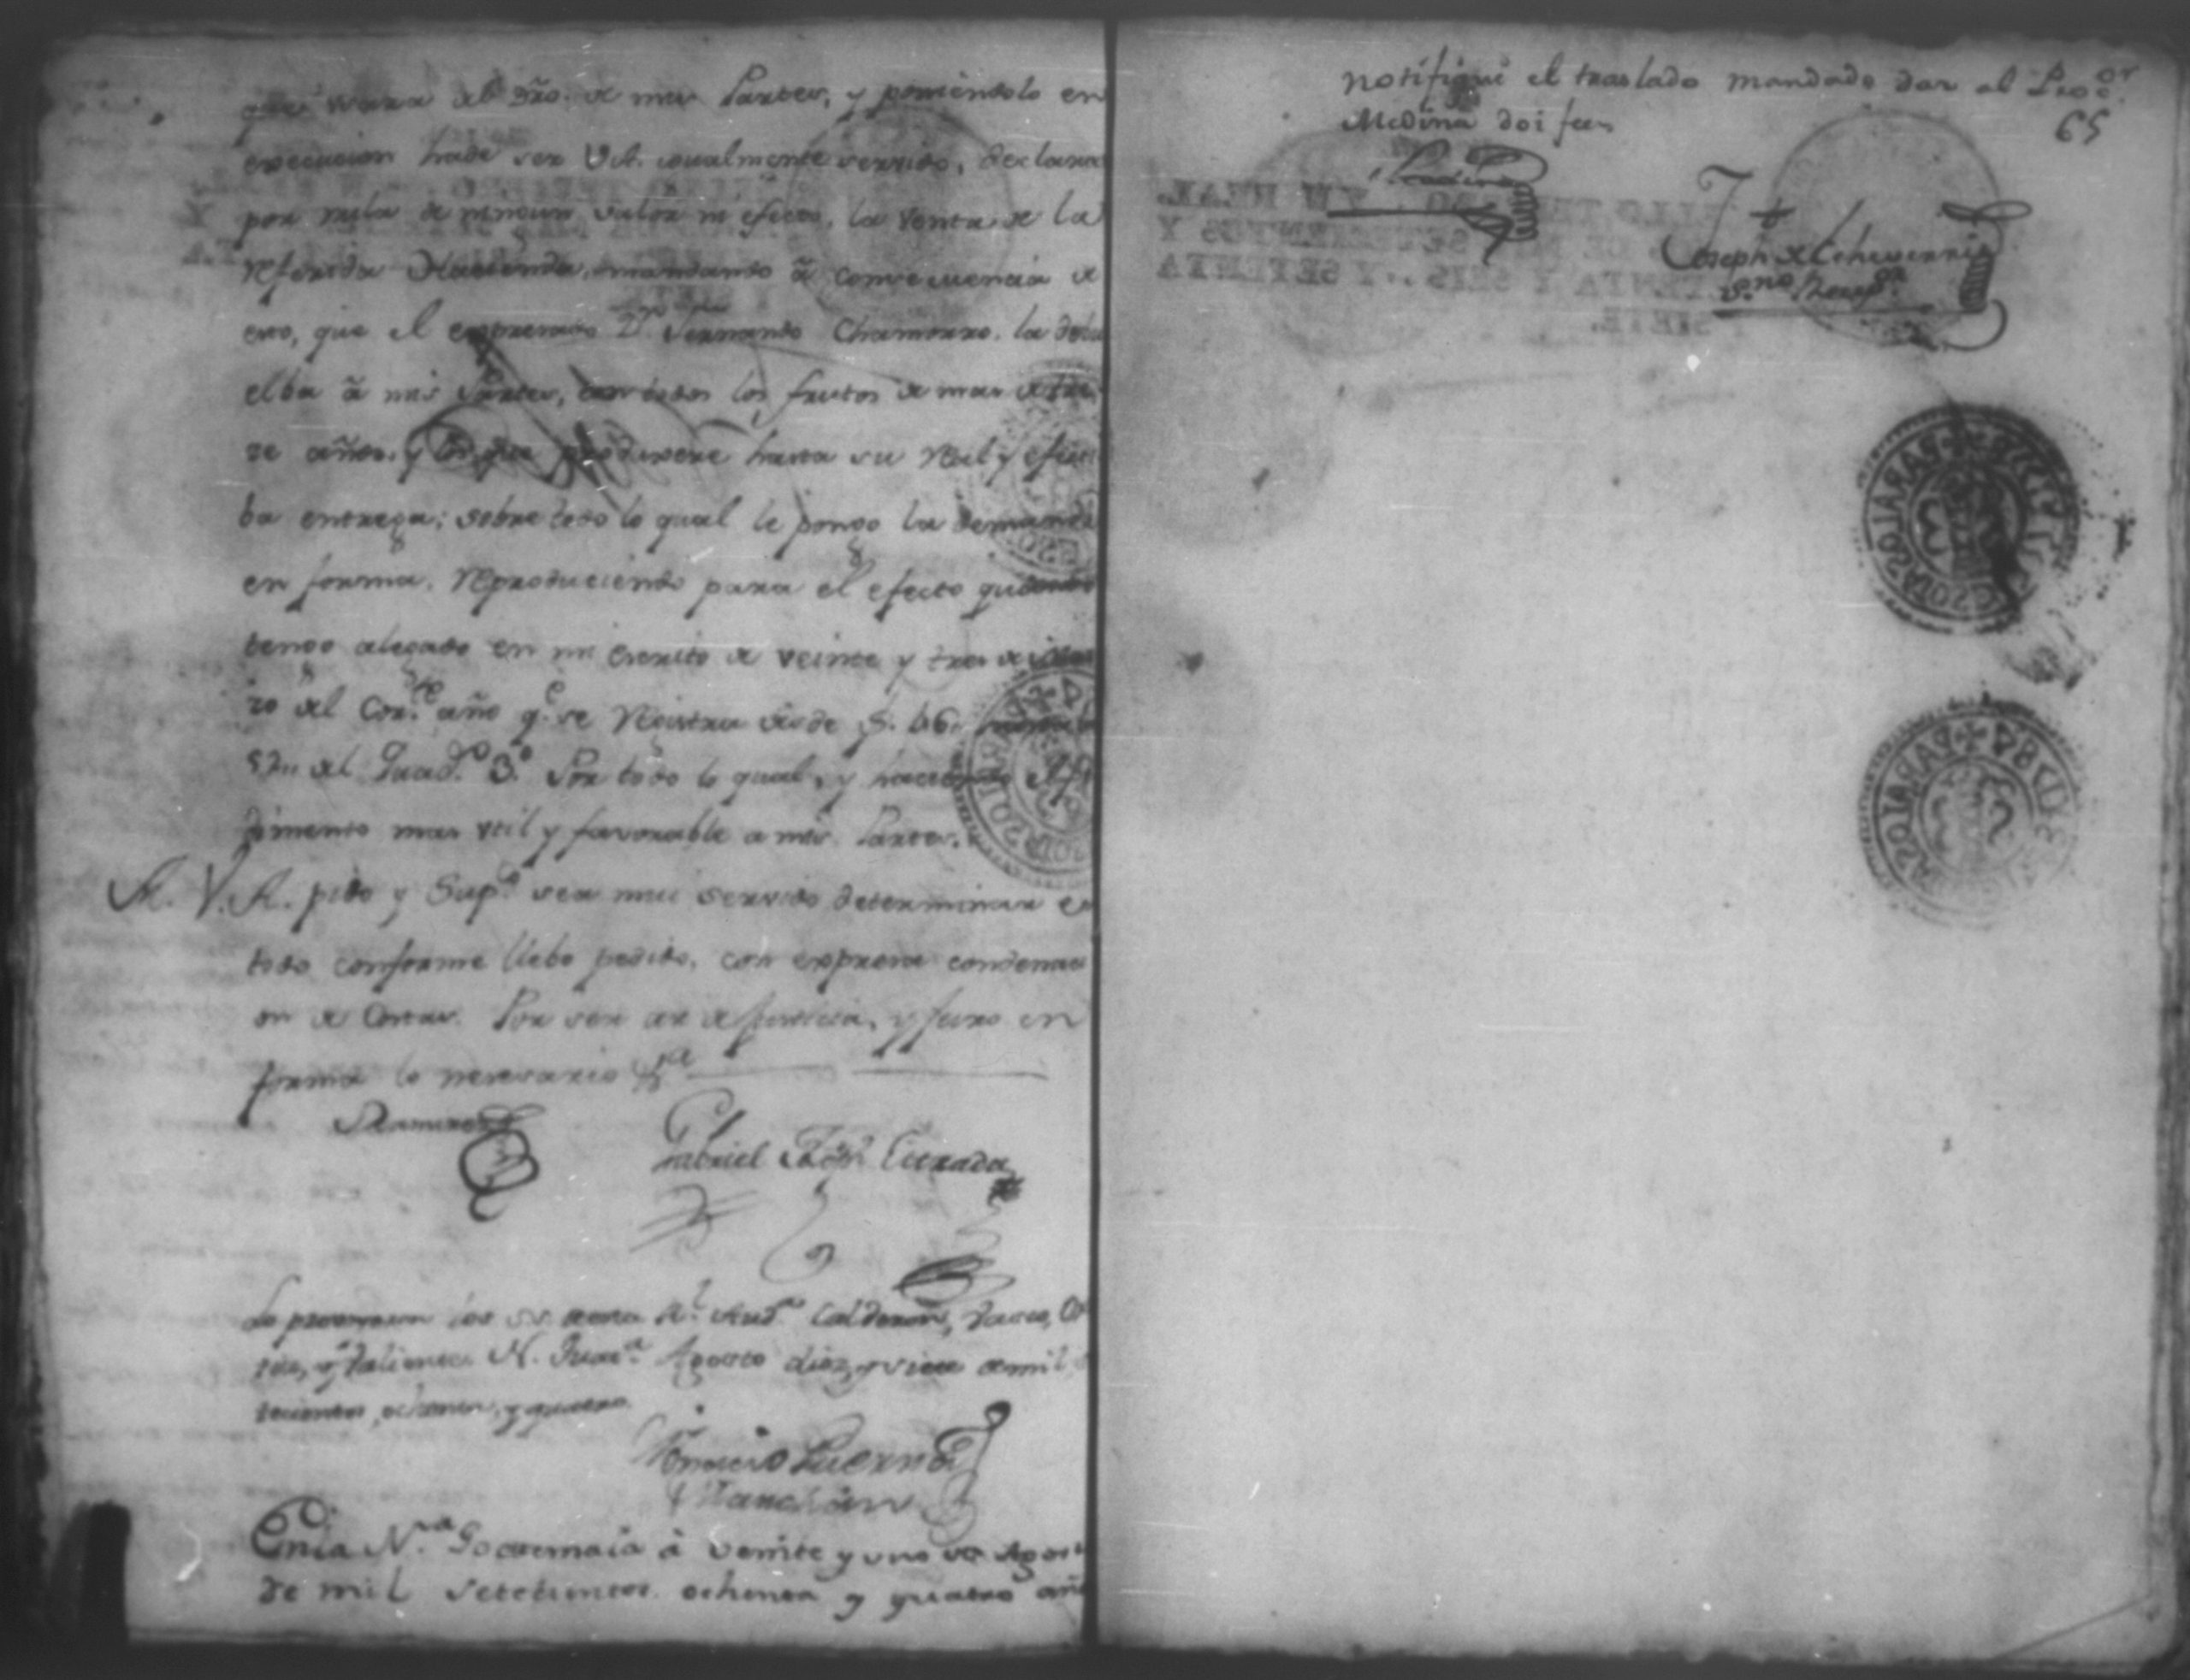 que usara del dro. de mis Partes, y poniendolo en
execucion hade ser V.A. igualmente servido, declarar
por nula de ningun valor ni efecto, la venta de la
referida Hacienda, mandando â consecuencia de
eso, que el expresado Dn. Fernando Chamorro, la debu
elba â mis Partes, con todos los frutos de mas de
se años, y los que produxere hasta su Real y efecti
ba entrega; sobre todo lo qual le pongo la demanda
en forma, Reproduciendo para el efecto
tengo alegado en mi escrito de veinte y tres de
ro del Corrte. año qe. se Registra desde f. 46.
57,, del Quadno. 3o. Por todo lo qual, y haciendo el pe
dimento mas util y favorable a mis Partes.
A. V.A. pido y Supco. sea mui servido determinar en
todo conforme llebo pedido, con expresa condenaci
on de Costas. Por ser asi de justicia, y juro en
forma lo necesario &a.
Ramirez
Gabriel Estrada
Lo proveyeron los SS. Rl. Auda. Calderon,
y N. Guata. Agosto diez y siete de mil
tecientos, ochenta, y quatro.
Ignacio Guerra
Marchan
En la Na. Goatemala â veinte y uno de Agosto
de mil setecientos ochenta y quatro años
notifiqué el traslado mandado dar al Procor.
65
Medina doi fee
Medina
Joseph de Echeverria
Sno. Recepor.
SELLO TERCERO, VN REAL,
AÑOS DE MIL SETECIENTOS Y
SETENTA Y SEIS, Y SETENTA
Y SIETE.
PARALOSAÑOSD
PARALOSAÑOS